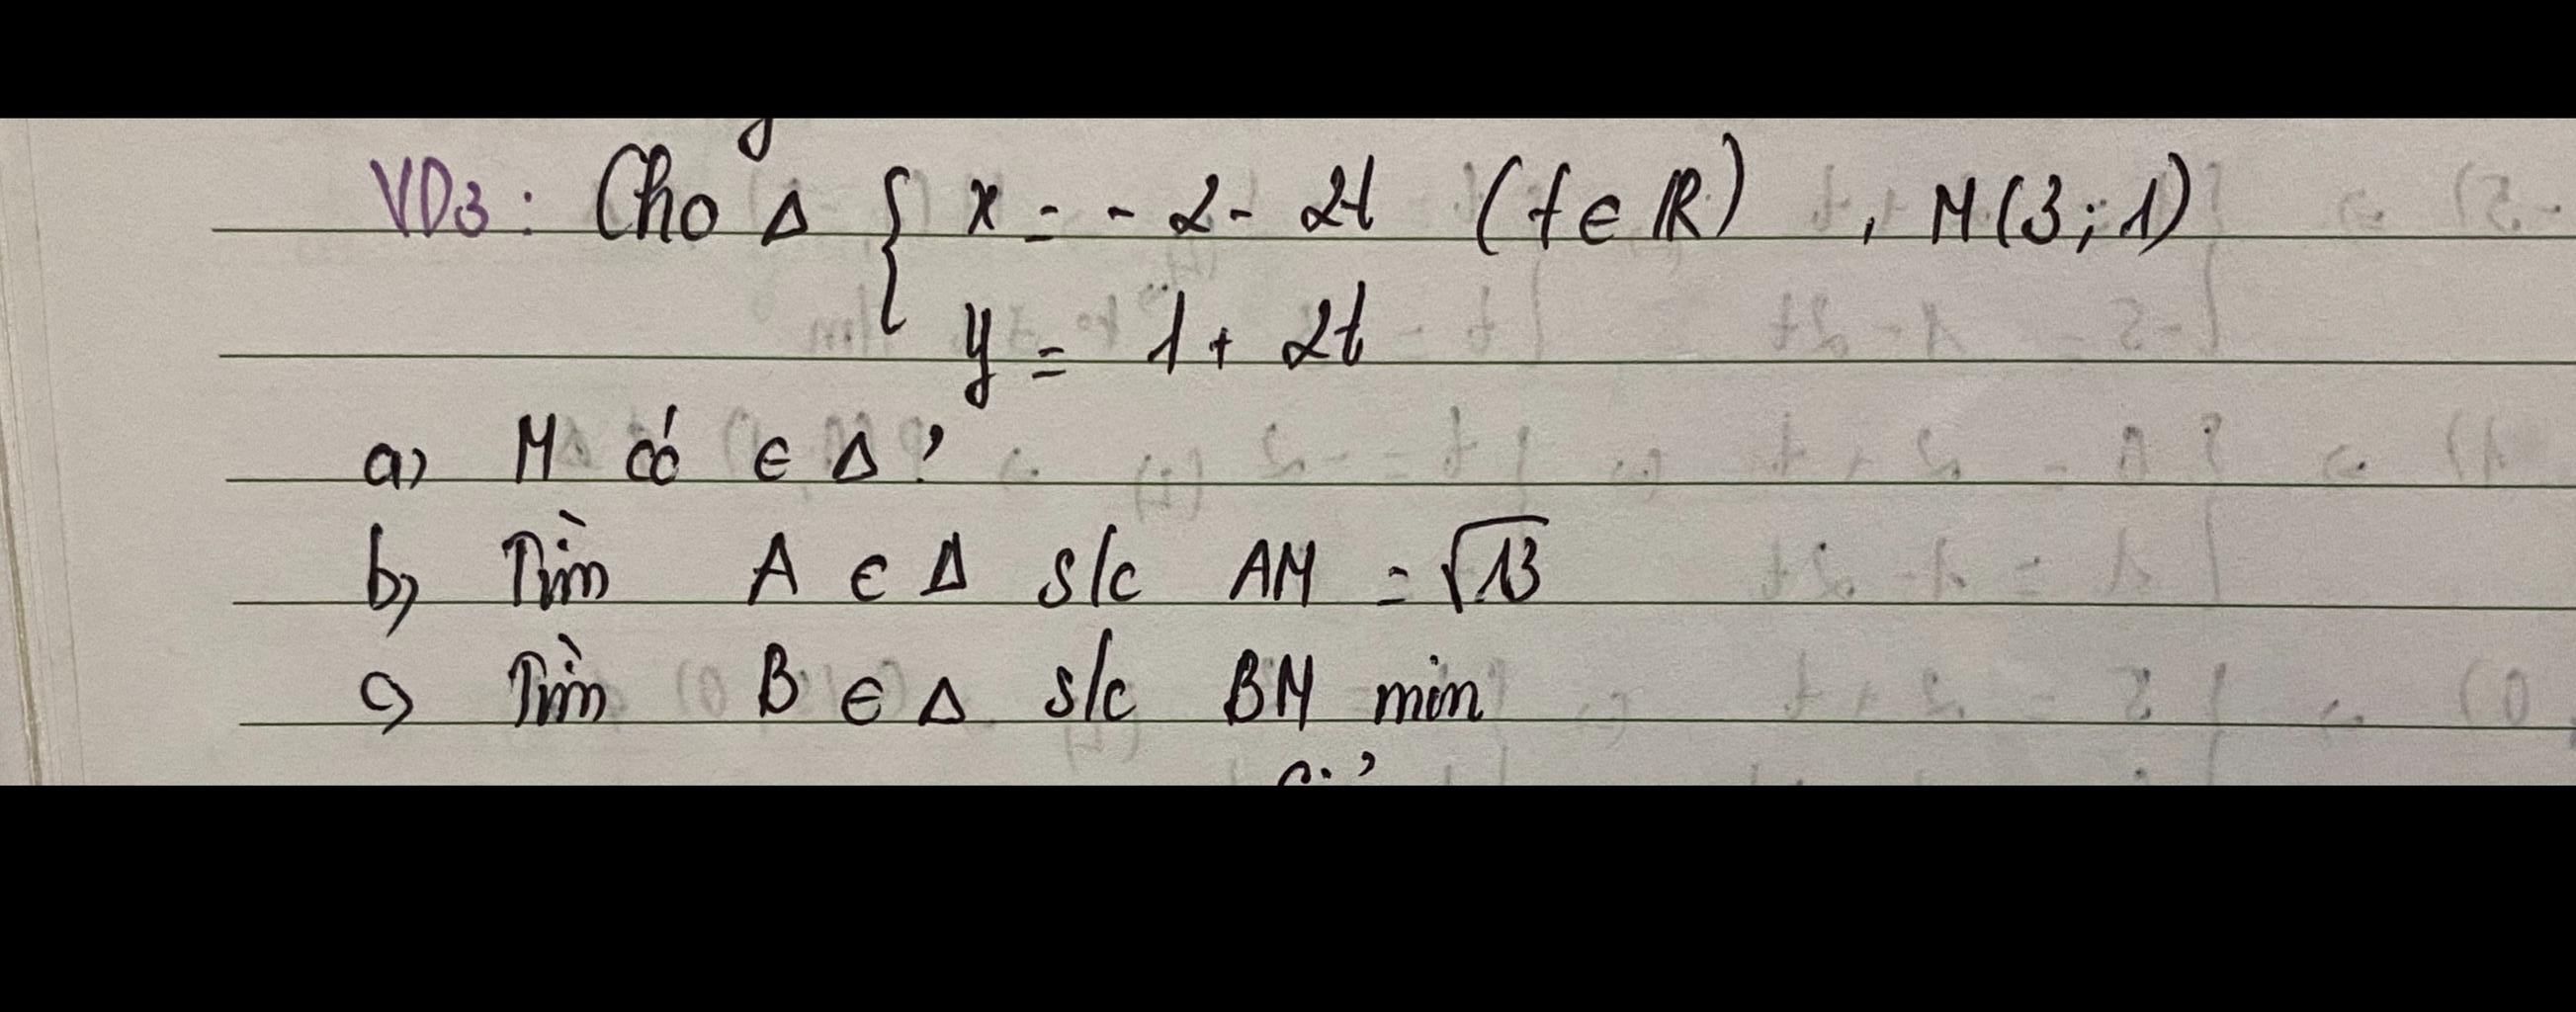 VD3: Cho Δ { x = -2 - 2t (t ∈ R) , M(3; 1)
y = 1 + 2t
a) M có ∈ Δ?
b) Tìm A ∈ Δ s/c AM = √13
c) Tìm B ∈ Δ s/c BM min